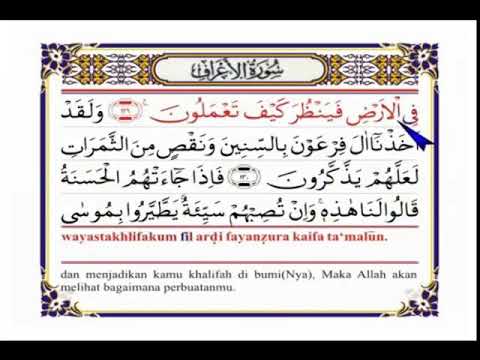 سُورَةُ الْأَعْرَافِ
فِي الْأَرْضِ فَيَنْظُرَ كَيْفَ تَعْمَلُونَ ﴿١٢٩﴾ وَلَقَدْ
أَخَذْنَا آلَ فِرْعَوْنَ بِالسِّنِينَ وَنَقْصٍ مِنَ الثَّمَرَاتِ
لَعَلَّهُمْ يَذَّكَّرُونَ ﴿١٣٠﴾ فَإِذَا جَاءَتْهُمُ الْحَسَنَةُ
قَالُوا لَنَا هَٰذِهِ وَإِنْ تُصِبْهُمْ سَيِّئَةٌ يَطَّيَّرُوا بِمُوسَى
wayastakhlifakum fil arḍi fayanẓura kaifa ta‘malūn.
dan menjadikan kamu khalifah di bumi(Nya), Maka Allah akan
melihat bagaimana perbuatanmu.